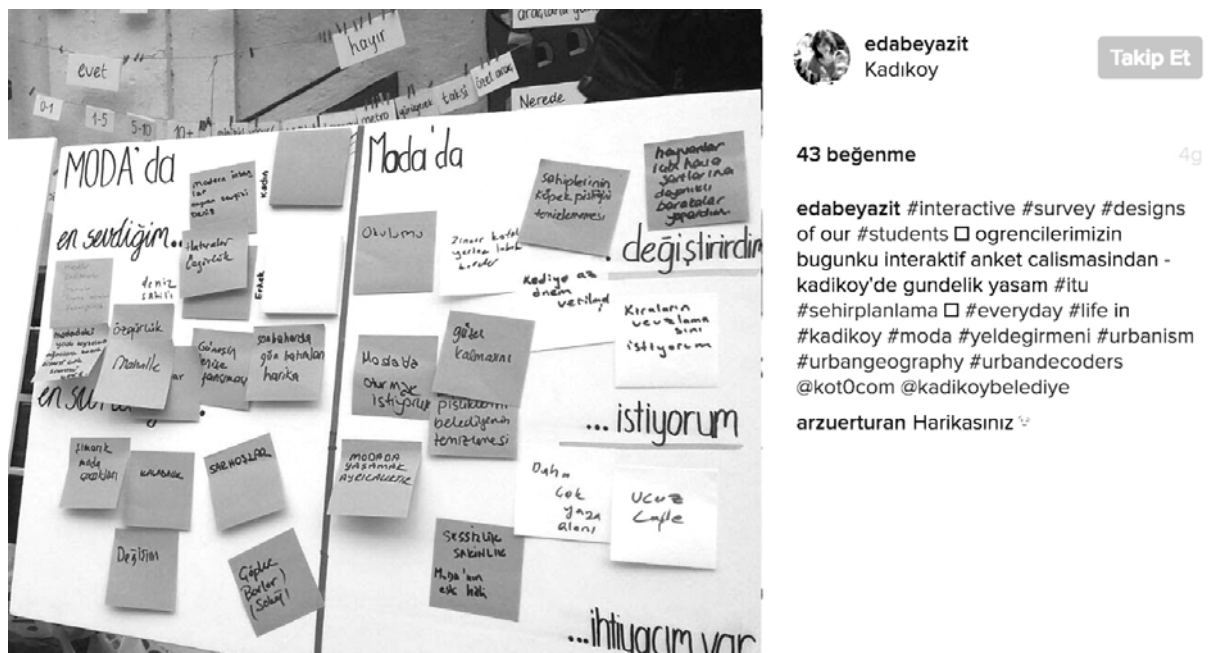 araçlarla
evet
hayır
0-1
1-5
5-10
10+
metro
yürüyerek
taksi
özel araç
Nerede
MODA'da
Kadın
Erkek
en sevdiğim..
Hatıralar
Özgürlük
deniz
sahili
özgürlük
Mahalle
sonbaharda
gün batımları
harika
şımarık
moda
çocukları
KALABALIK
SARHOŞLAR
Değişim
Çöpler
Barlar)
(Sokağı)
Moda'da
Okulumu
sahiplerinin
köpek pisliğini
temizlememesi
hayvanlar
için hava
şartlarına
dayanıklı
barakalar
yapardım.
. değiştirirdim
Kediye az
önem
Kiraların
ucuzlama
sını
istiyorum
Moda'da
oturmak
istiyorum
güzel
kalmasını
pisliklerini
belediyenin
temizlemesi
...istiyorum
MODADA
YAŞAMAK
AYRICALIKTIR
Daha
çok
alanı
ucuz
cafe
SESSİZLİK
SAKİNLİK
Moda'nın
eski hali
...ihtiyacım var
edabeyazit
Kadıkoy
Takip Et
43 beğenme
4g
edabeyazit #interactive #survey #designs
of our #students □ ogrencilerimizin
bugunku interaktif anket calismasindan -
kadikoy'de gundelik yasam #itu
#sehirplanlama □ #everyday #life in
#kadikoy #moda #yeldegirmeni #urbanism
#urbangeography #urbandecoders
@kot0com @kadikoybelediye
arzuerturan Harikasınız